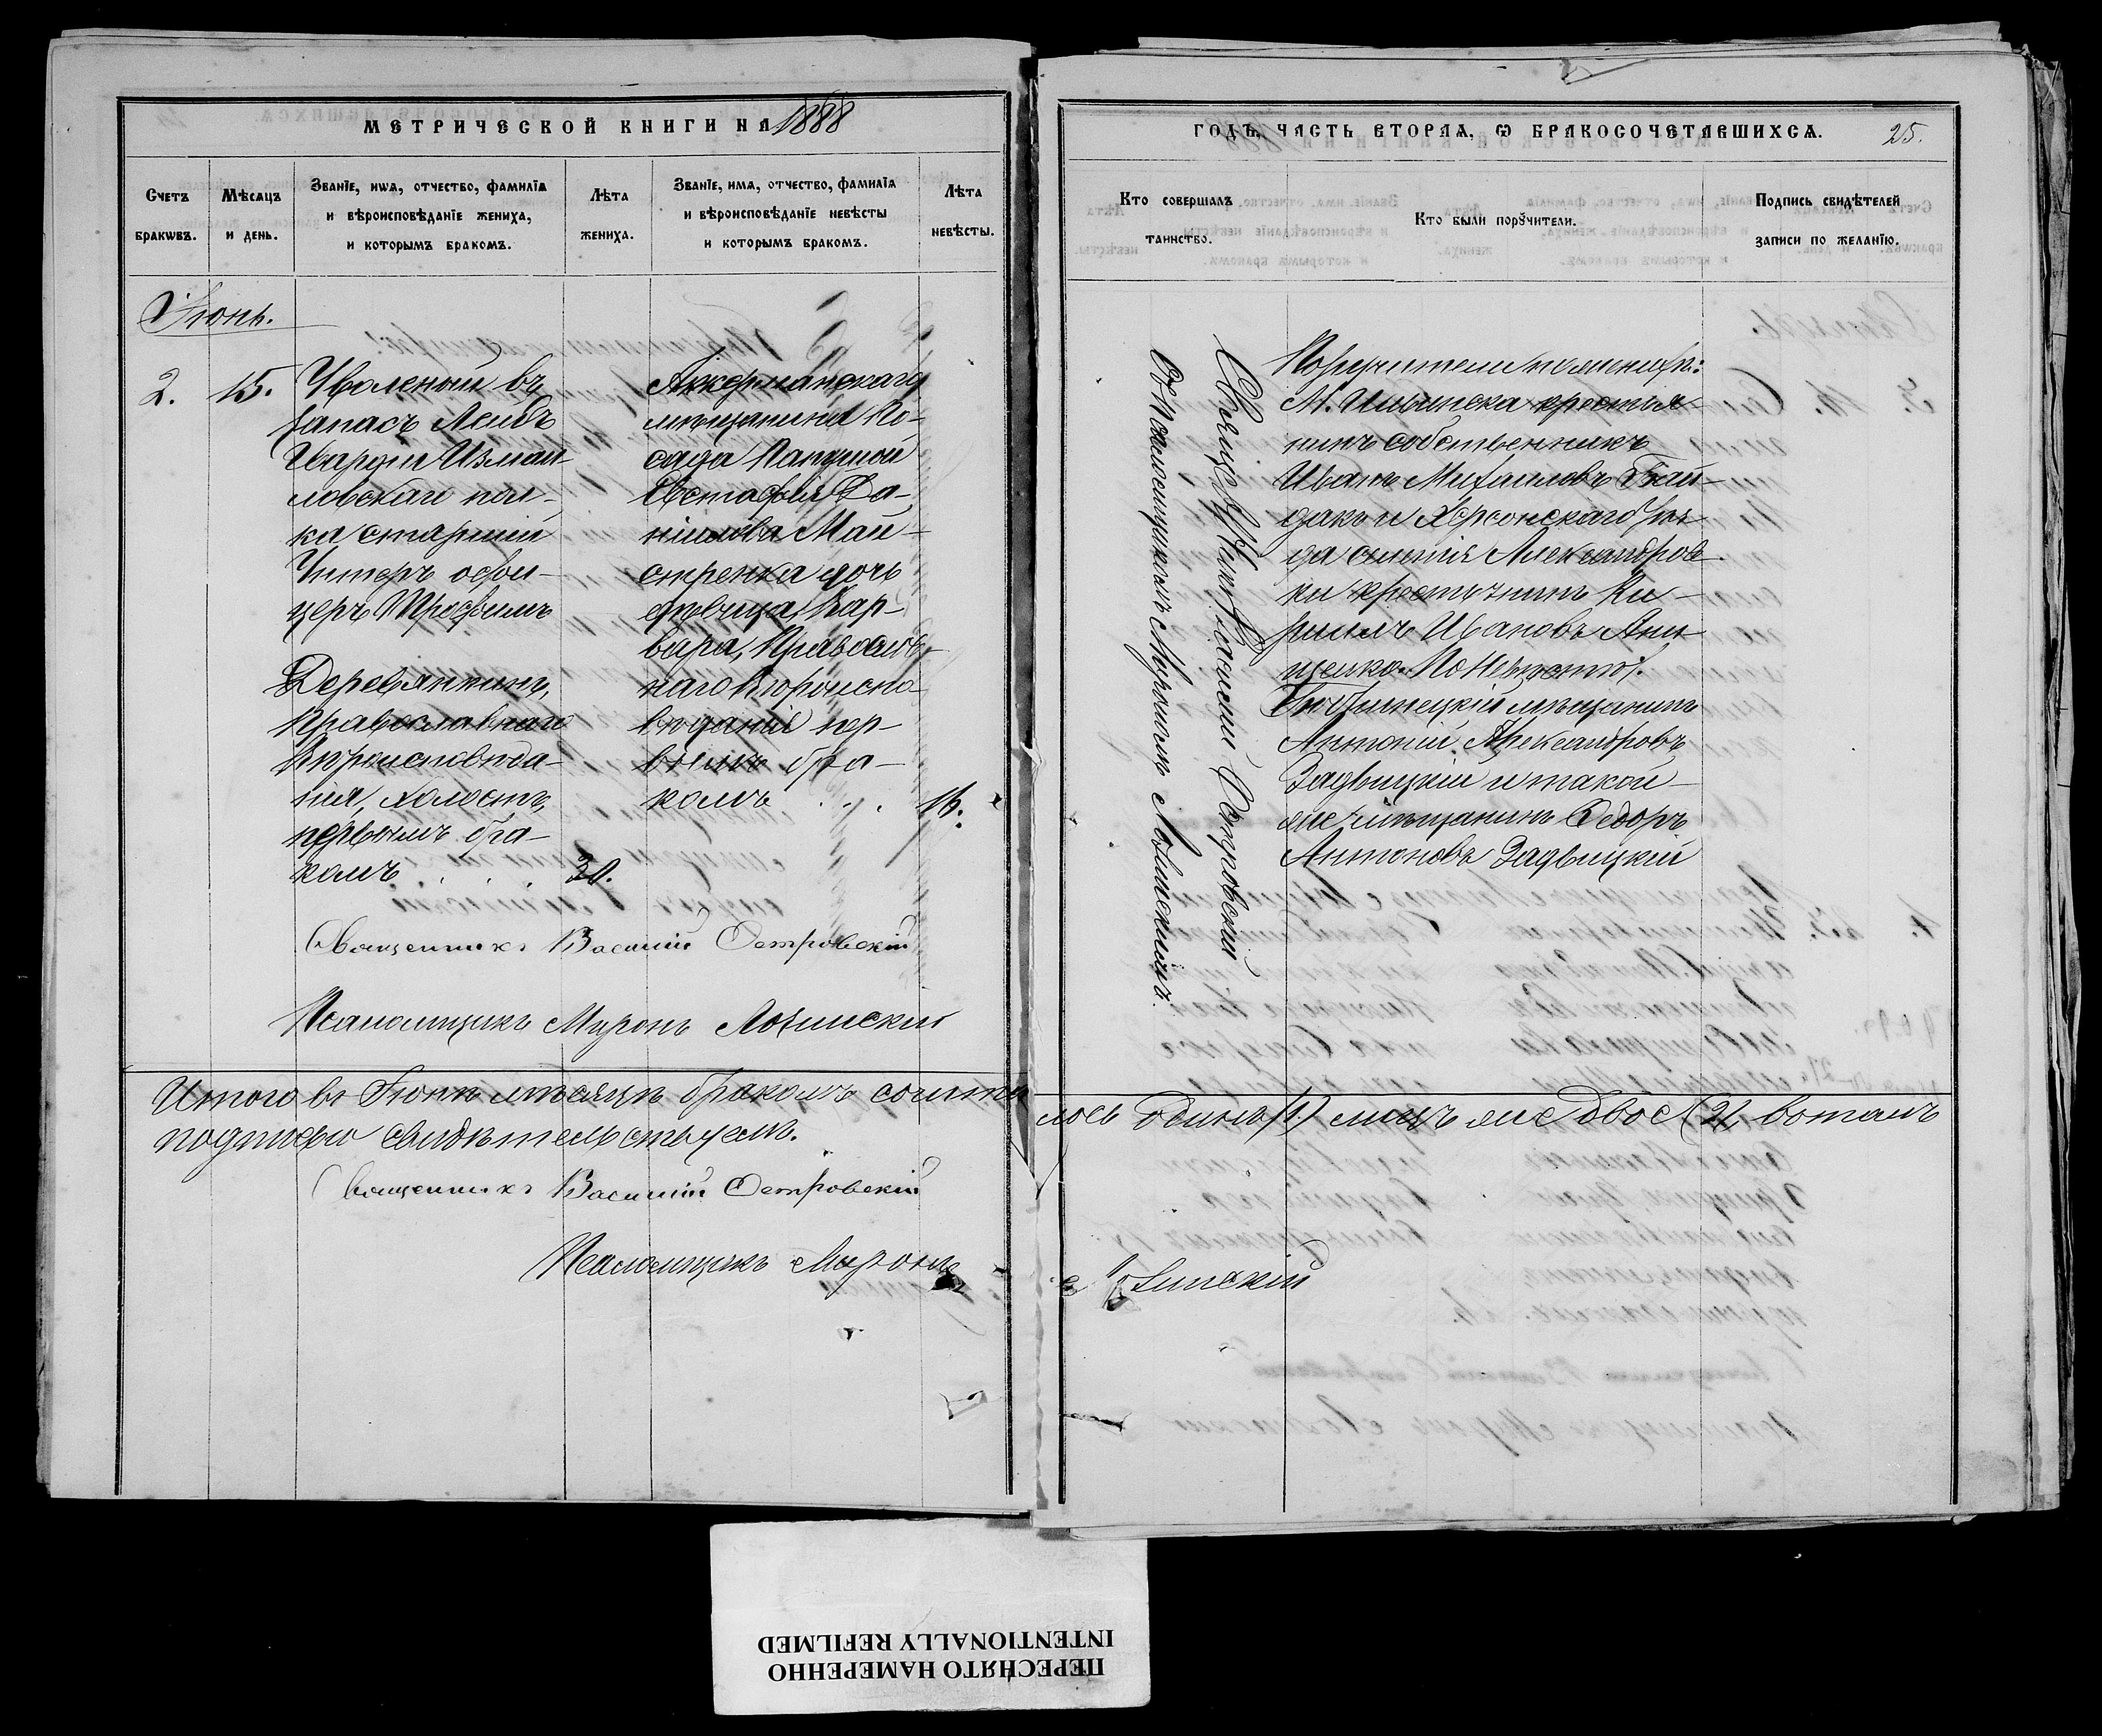 МЕТРИЧЕСКОЙ КНИГИ НА 1888
Счетъ браквъ.
Мѣсяцъ и день.
Званіе, имя, отчество, фамилія и вѣроисповѣданіе жениха, и которымъ бракомъ.
Лѣта жениха.
Званіе, имя, отчество, фамилія и вѣроисповѣданіе невѣсты и которымъ бракомъ.
Лѣта невѣсты.
Іюнь.
2. 15.
Уволеный въ
запасъ Лейбъ
Гвардіи Измай-
ловскаго пол-
ка старшій
Унтеръ офи-
церъ Трофимъ
Деревянкинъ,
Православнаго
Вѣроисповѣда-
нія, холостъ,
первымъ бра-
комъ . . . 30.
Аккерманскаго
мѣщанина По-
сада Папушой
Евстафія Да-
ніилова Май-
стренка дочь
дѣвица Вар-
вара, Православ-
наго Вѣроиспо-
вѣданія пер-
вымъ бра-
комъ . . . 16.
Священникъ Василій Островскій
Псаломщикъ Миронъ Лозинскій
Итого въ Іюнѣ мѣсяцѣ бракомъ сочета
подписью свидѣтельствуемъ.
Священникъ Василій Островскій
Псаломщикъ Миронъ
ГОДЪ, ЧАСТЬ ВТОРАЯ, Ѡ БРАКОСОЧЕТАВШИХСЯ. 25.
Кто совершалъ таинство.
Кто были порꙋчители.
Подпись свидѣтелей записи по желанію.
Священникъ Василій Островскій
Съ Псаломщикомъ Мирономъ Лозинскимъ.
Поручители по женихѣ:
М. Ильинска крестья-
нинъ собственникъ
Иванъ Михаиловъ Гай-
дакъ и Херсонскаго уѣз-
да селенія Александров-
ки крестьянинъ Ки-
риллъ Ивановъ Ани-
щенко. По Невѣстѣ:
мѣщанинъ
Антоній Александровъ
Задвицкій и такой-
же мѣщанинъ Федоръ
Антоновъ Задвицкій
лось одинъ (1) лицъ же двое (2) вотомъ
Лозинскій
ПЕРЕСНЯТО НАМЕРЕННО
INTENTIONALLY REFILMED